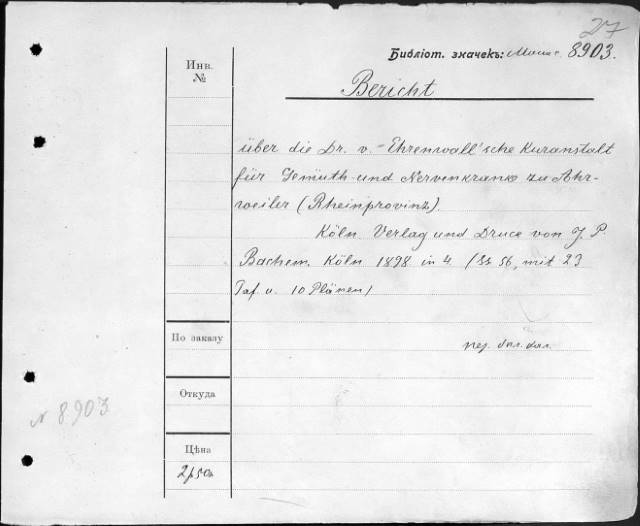 27
Библіот. значекъ: 8903.
Инв.
№
Bericht
über die Dr. v. Ehrenwall'sche Kuranstalt
für Gemüth- und Nervenkranke zu Ahr-
weiler (Rheinprovinz).
Köln. Verlag und Druce von J. P.
Bachem. Köln 1898 in 4. (SS 56, mit 23
Taf. u. 10 Plänen)
По заказу
Откуда
N 8903
Цѣна
2р 50к